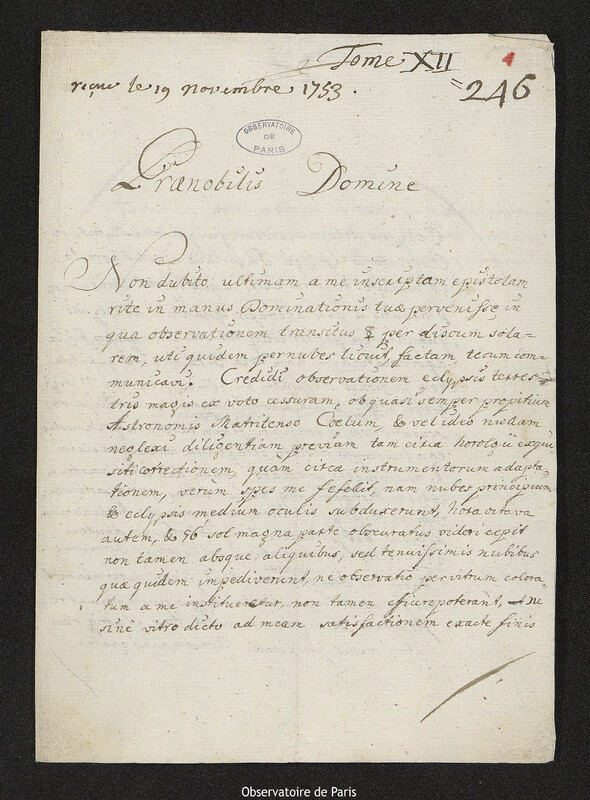 Tome XII
4
reçue le 19 novembre 1753.
=246
OBSERVATOIRE
DE
PARIS
Prænobilis Domine
Non dubito, ultimam a me inscriptam epistolam
rite in manus Dominationis tuæ pervenisse, in
qua observationem transitus ☿ per discum sola=
rem, uti quidem per nubes licuit, factam, tecum com=
municavi. Credidi observationem eclypsis terres=
tris magis ex voto cessuram, ob quasi semper propitium
Astronomis Matritense Coelum, & vel ideo nullam
neglexi diligentiam previam tam circa horologii exqui
siti correctionem, quam circa instrumentorum adapta
tionem, verùm spes me fefelit, nam nubes principium
& eclypsis medium oculis subduxerunt, hora octava
autem, & 56' sol magna parte obscuratus videri cepit
non tamen absque aliquibus, sed tenuissimis nubibus
quæ quidem impediverunt, ne observatio per vitrum colora
tum a me institueretur, non tamen efficere poterant, ne
sine vitro dicto ad meam satisfactionem exacte finis
Observatoire de Paris